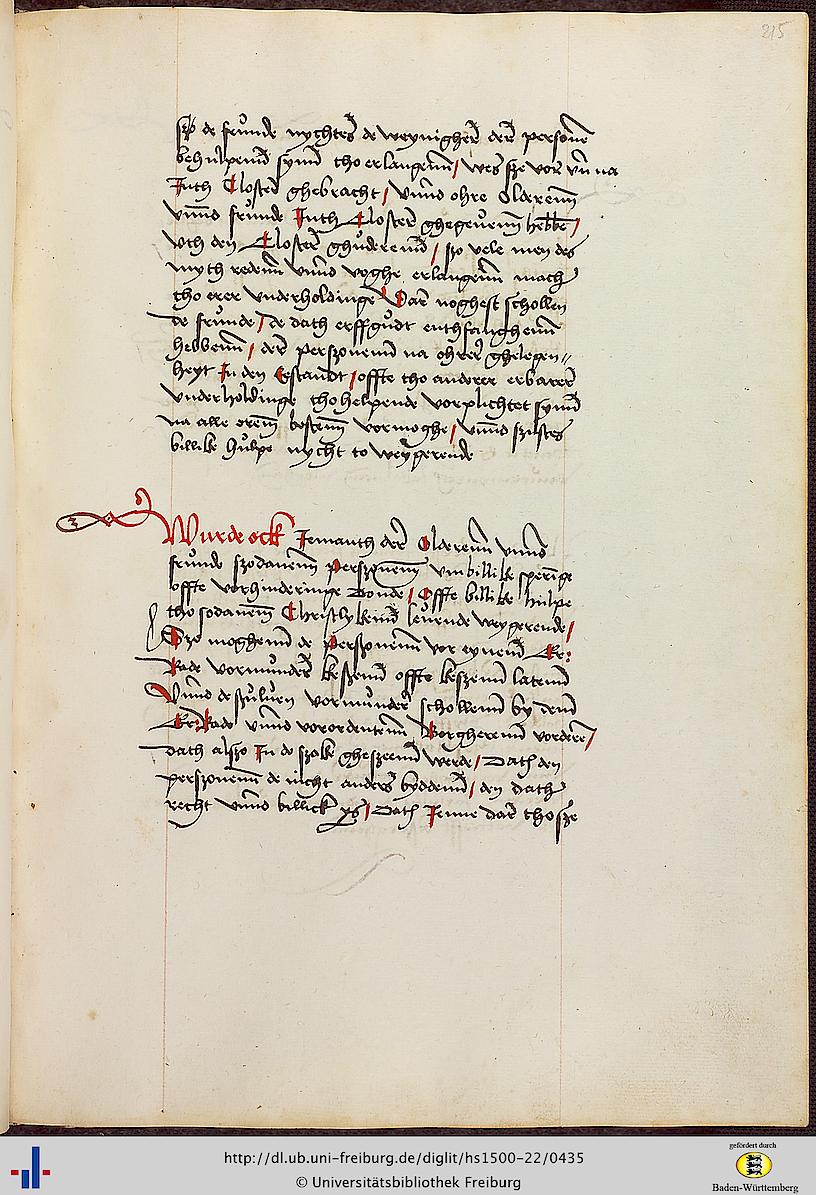 215
szo de frunde nychtes de weynigher der persone
behulpennd synnd tho erlangenn / wes sze vor vn na
Inth Closter ghebracht / vnnd ohre Olderenn
vnnd frunde Inth Closter ghegeuenn hebbe /
vth den Closter ghuderennd / szo vele men des
myth redenn vnnd voghe erlangenn mach
tho erer vnderholdinge Dar noghest schollen
de frunde / de dath erffgudt enthfanghenn
hebbenn / der perszonenn na ohrer ghelegen-
heyt In den Eestandt / offte tho anderer erbarer
vnderholdinge tho helpende vorplichtet synnd
na alle orem bostenn vormoghe / vnnd szustes
billike hulpe nycht to weygerende
Wurde ock Iemanth der Olderenn vnnd
frunde szodanenn Perszonenn vnbillike speringe
offte vorhinderinge donde / Offte billike hulpe
tho sodanem Christlykennd leuende weygerende /
Szo moghenn de Perszonenn vor eynenn Er:
Rade vormunder keszennd offte keszenn latenn
Vnnd desuluen vormunder schollenn by denn
Er: Rade vnnd vorordentenn Borgherenn vorderen /
dath alszo In de szake gheszeenn werde / Dath den
perszonenn de nicht anders byddennd / den dath
recht vnnd billick ys / Dath Ienne dar tho sze
http://dl.ub.uni-freiburg.de/diglit/hs1500-22/0435
© Universitätsbibliothek Freiburg
gefördert durch
Baden-Württemberg